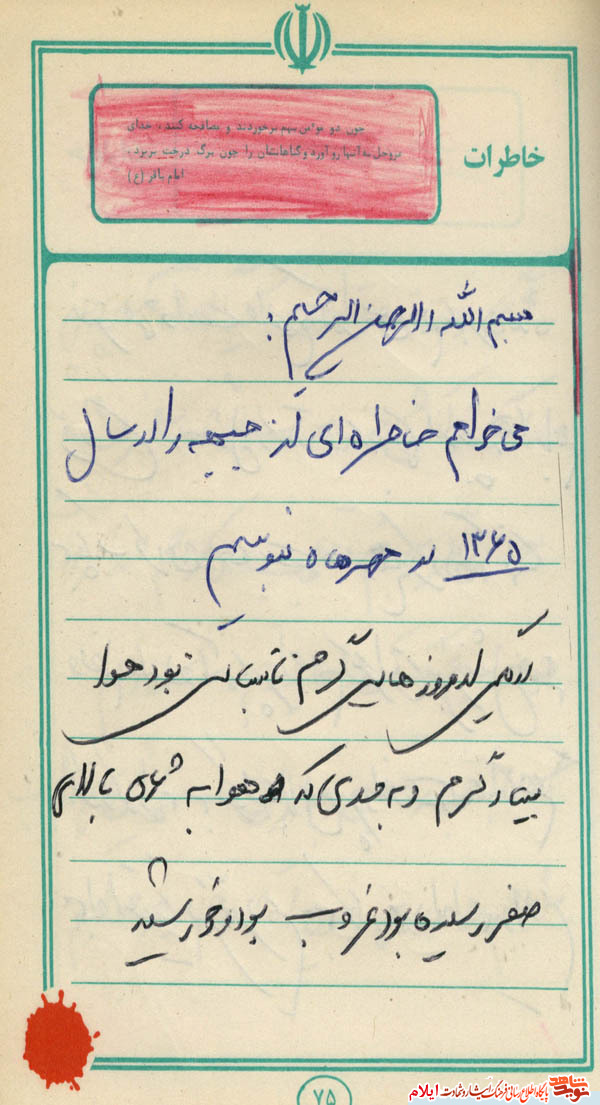 خاطرات
چون دو مؤمن بهم برخوردند و مصافحه کنند، خدای
عزوجل به آنها رو آورد و گناهانشان را چون برگ درخت بریزد.
امام باقر (ع)
بسم الله الرحمن الرحیم :
می خواهم خاطره ای از جبهه را در سال
۱۳۶۵ در مهرماه بنویسم
در یکی از روزهای گرم تابستان بود هوا
بسیار گرم و به حدی که هوا به ۵۶° بالای
صفر رسیده بود غروب بود و خورشید
۷۵
نوید شاهد
پایگاه اطلاع رسانی فرهنگ ایثار و شهادت ایلام